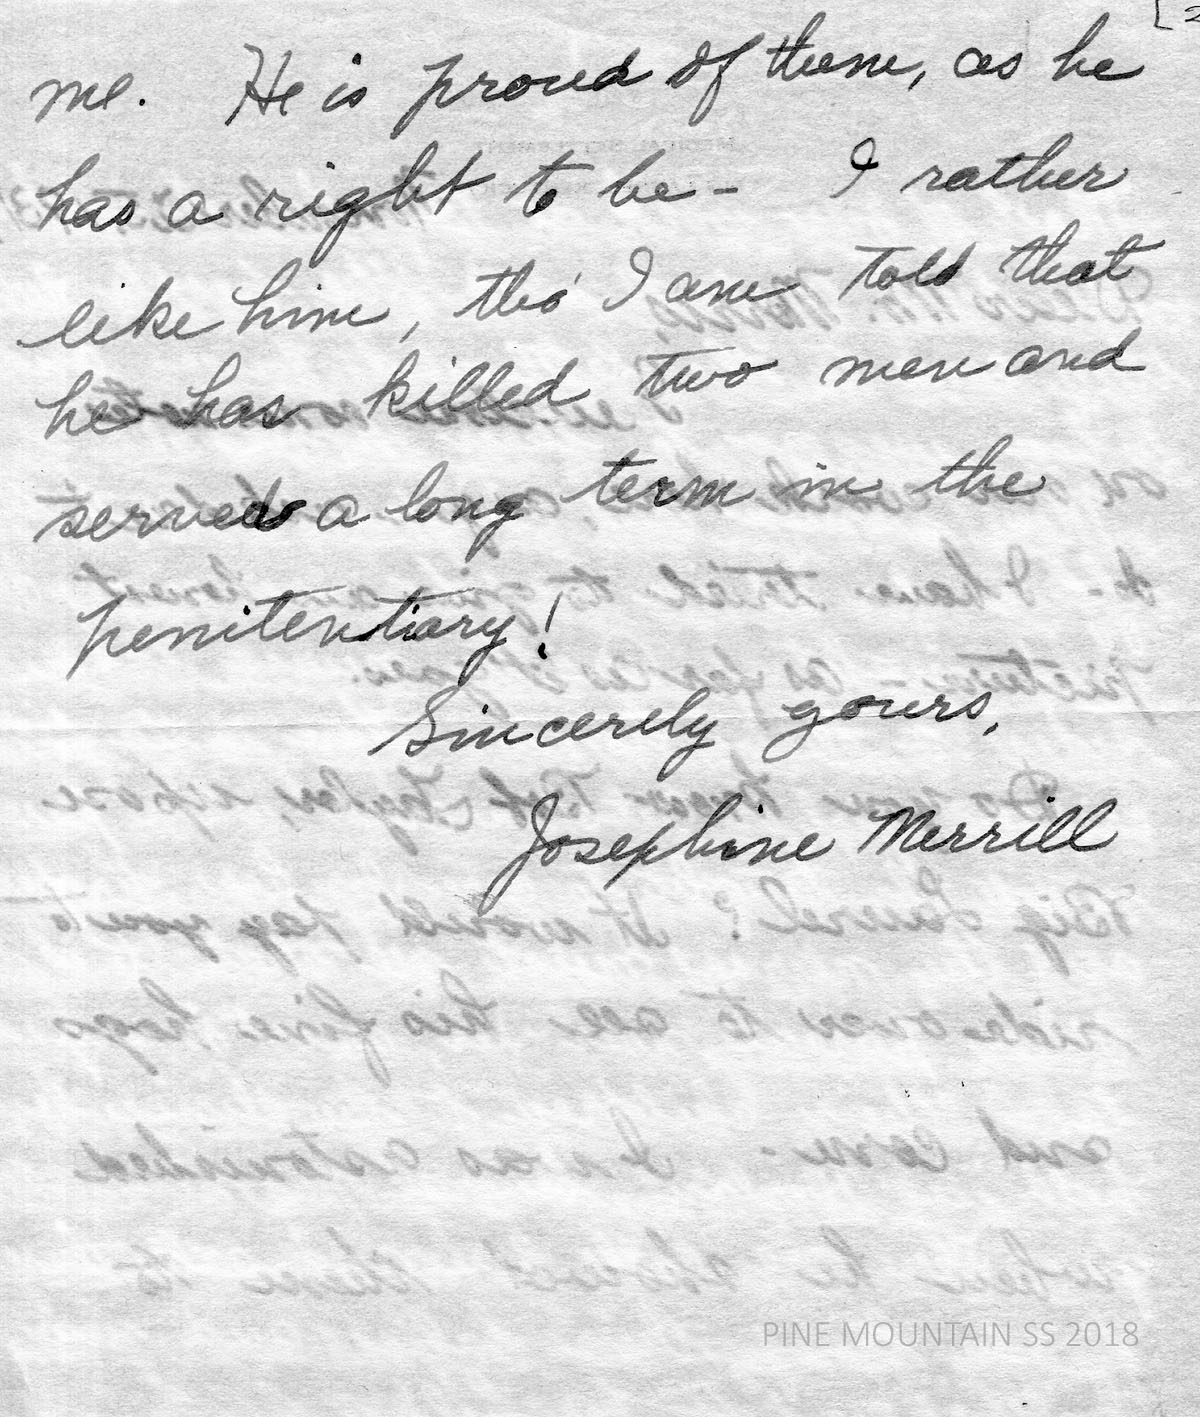 [2
me. He is proud of them, as he
has a right to be - I rather
like him, tho' I am told that
he has killed two men and
served a long term in the
penitentiary!
Sincerely yours,
Josephine Merrill
PINE MOUNTAIN SS 2018